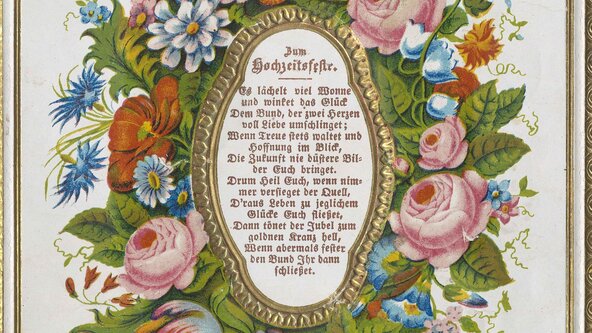 Zum
Hochzeitsfeste.
Es lächelt viel Wonne
und winket das Glück
Dem Bund, der zwei Herzen
voll Liebe umschlinget;
Wenn Treue stets waltet und
Hoffnung im Blick,
Die Zukunft nie düstere Bil-
der Euch bringet.
Drum Heil Euch, wenn nim-
mer versieget der Quell,
D'raus Leben zu jeglichem
Glücke Euch fließet,
Dann tönet der Jubel zum
goldnen Kranz hell,
Wenn abermals fester
den Bund Ihr dann
schließet.